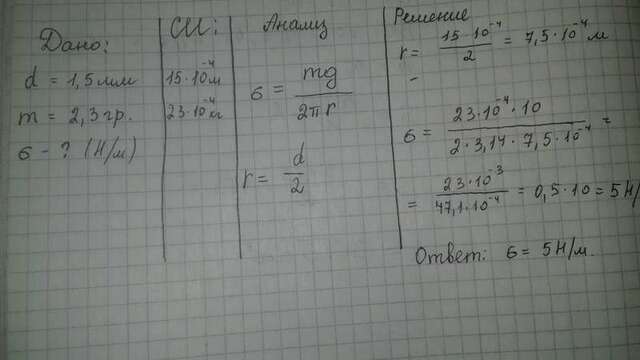 Дано:
d = 1,5 мм
m = 2,3 гр.
б - ? (Н/м)
СИ:
15·10⁻⁴ м
23·10⁻⁴ кг
Анализ
б = mg / 2πr
r = d / 2
Решение
r = 15·10⁻⁴ / 2 = 7,5·10⁻⁴ м
б = 23·10⁻⁴·10 / 2·3,14·7,5·10⁻⁴ =
= 23·10⁻³ / 47,1·10⁻⁴ = 0,5·10 = 5Н/
Ответ: б = 5Н/м.